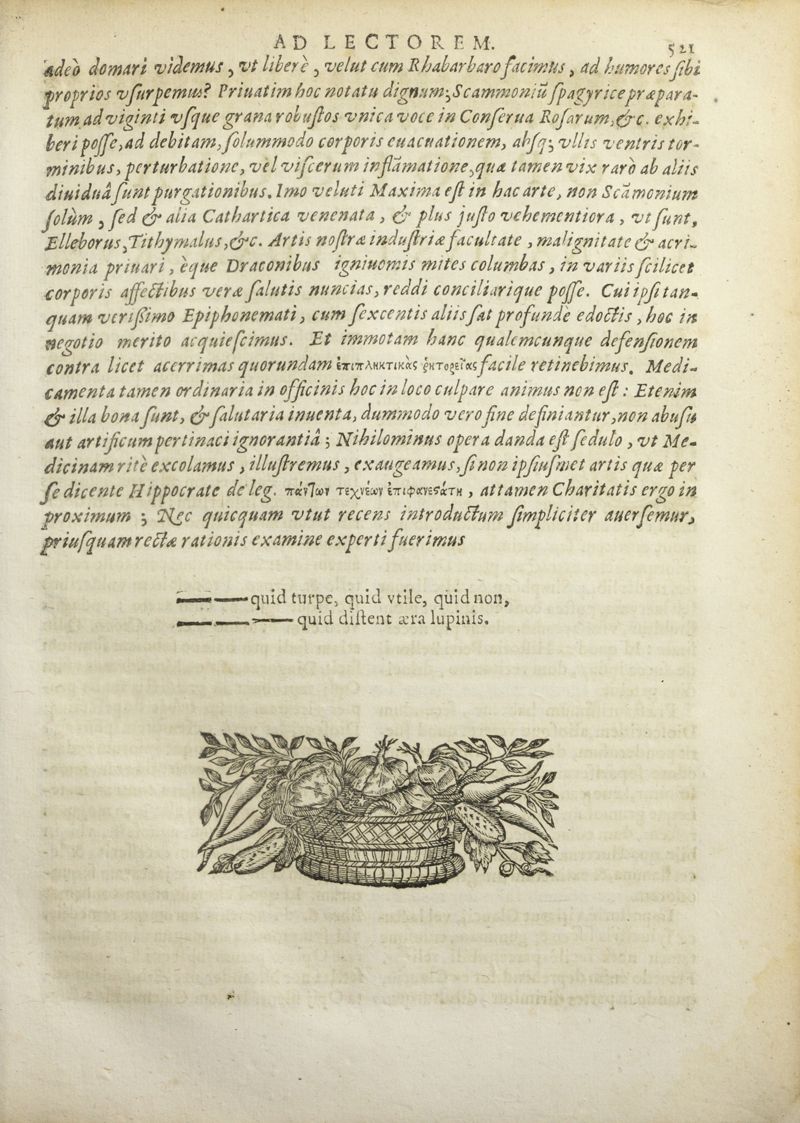 AD LECTOREM. 521
adeò domari videmus, vt liberè, velut cum Rhabarbaro facimus, ad humores sibi
proprios vsurpemus? Priuatim hoc notatu dignum; Scammoniũ spagyrice præpara-
tum ad viginti vsque grana robustos vnica voce in Conserua Rosarum, &c. exhi-
beri posse, ad debitam, solummodo corporis euacuationem, absq; vllis ventris tor-
minibus, perturbatione, vel viscerum inflãmatione, quæ tamen vix rarò ab aliis
diuiduâ sunt purgationibus. Imo veluti Maxima est in hac arte, non Scãmonium
solùm, sed & alia Cathartica venenata, & plus justo vehementiora, vt sunt,
Elleborus, Tithymalus, &c. Artis nostræ industriæ facultate, malignitate & acri-
monia priuari, èque Draconibus igniuomis mites columbas, in variis scilicet
corporis affectibus veræ salutis nuncias, reddi conciliarique posse. Cui ipsi tan-
quam verissimo Epiphonemati, cum sexcentis aliis sat profundè edoctis, hoc in
negotio merito acquiescimus. Et immotam hanc qualemcunque defensionem
contra licet acerrimas quorundam ἐπιπληκτικὰς ῥητορείας facile retinebimus. Medi-
camenta tamen ordinaria in officinis hoc in loco culpare animus non est: Etenim
& illa bona sunt, & salutaria inuenta, dummodo vero fine definiantur, non abusu
aut artificum pertinaci ignorantiâ; Nihilominus opera danda est sedulo, vt Me-
dicinam ritè excolamus, illustremus, exaugeamus, si non ipsiusmet artis quæ per
se dicente Hippocrate de leg. πάντων τεχνέων ἐπιφανεσάτη, attamen Charitatis ergo in
proximum; Nec quicquam vtut recens introductum simpliciter auersemur,
priusquam rectæ rationis examine experti fuerimus
quid turpe, quid vtile, quid non,
quid distent æra lupinis.